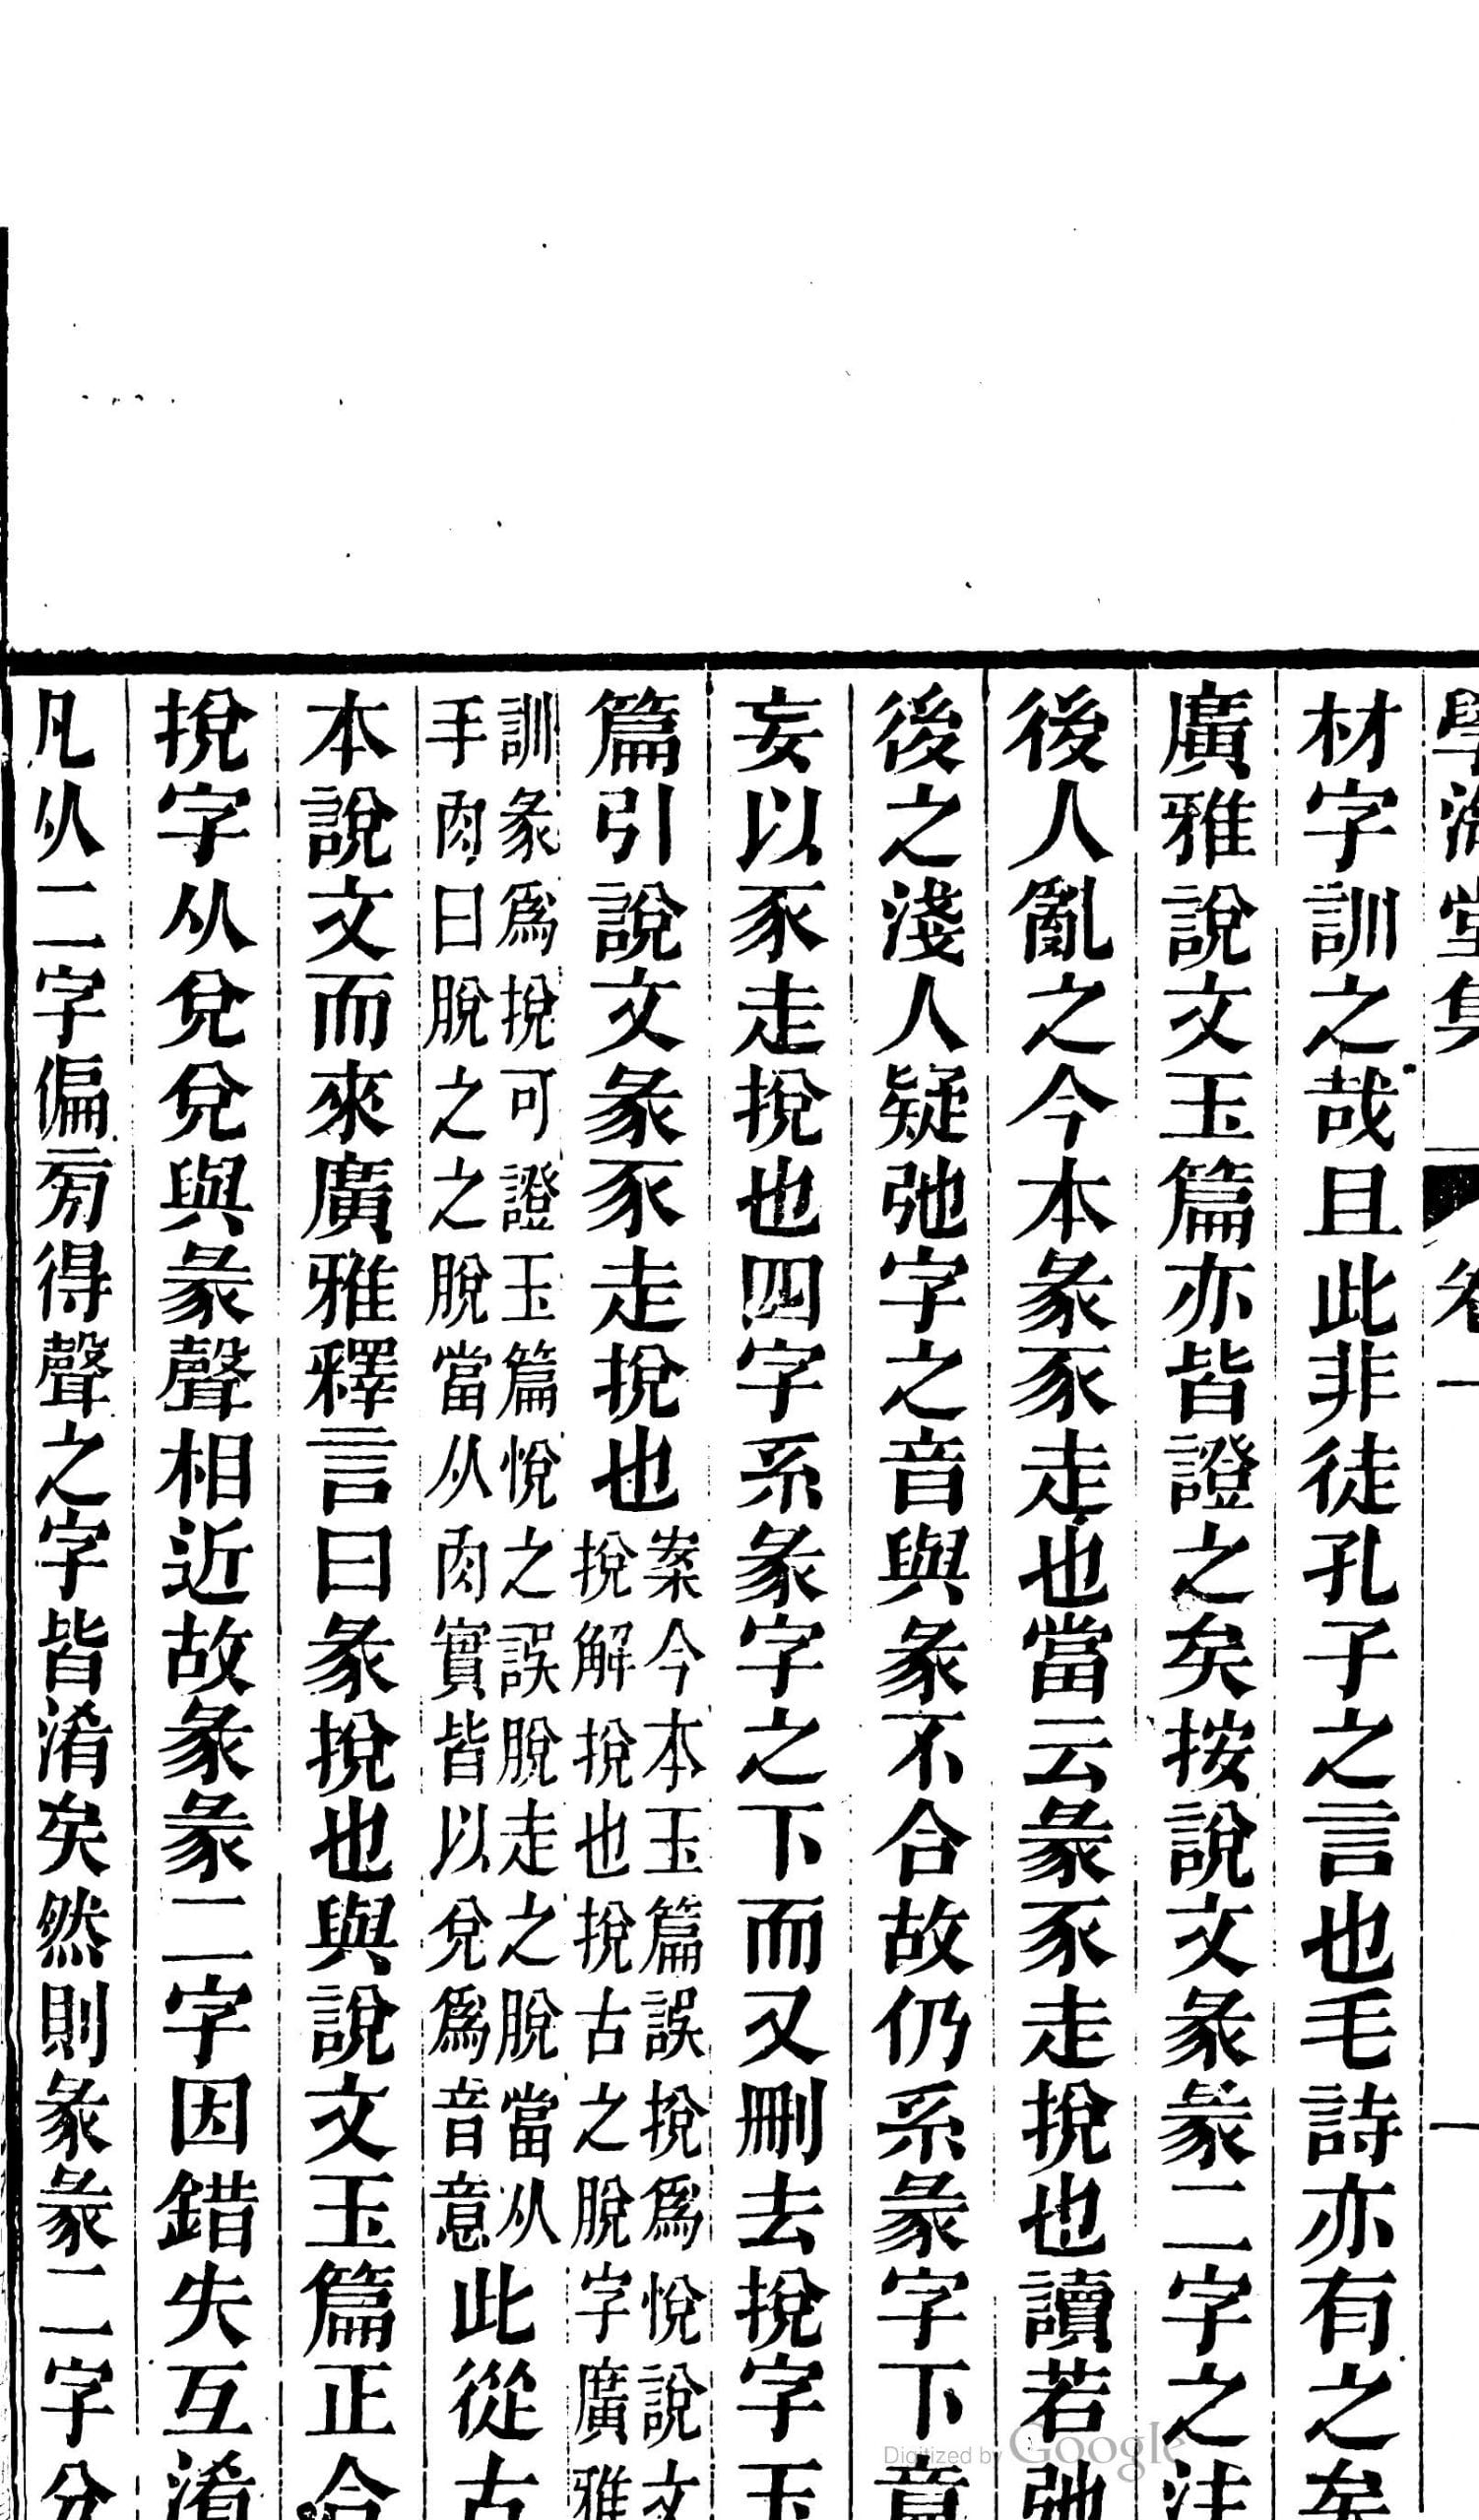 學海堂集 卷一 一
材字訓之哉且此非徒孔子之言也毛詩亦有之矣
廣雅說文玉篇亦皆證之矣按說文彖彖二字之注
後人亂之今本彖豕走也當云彖豕走挩也讀若弛
後之淺人疑弛字之音與彖不合故仍系彖字下竟
妄以豕走挩也四字系彖字之下而又刪去挩字玉
篇引說文彖豕走挩也
案今本玉篇誤挩爲悅說文
挩解挩也挩古之脫字廣雅
訓彖爲挩可證玉篇悅之誤脫走之脫當从
手肉曰脫之之脫當从肉實皆以兌爲音意
此從古
本說文而來廣雅釋言曰彖挩也與說文玉篇正合
挩字从兌兌與彖聲相近故彖彖二字因錯失互淆
凡从二字偏旁得聲之字皆淆矣然則彖彖二字分
Digitized by Google